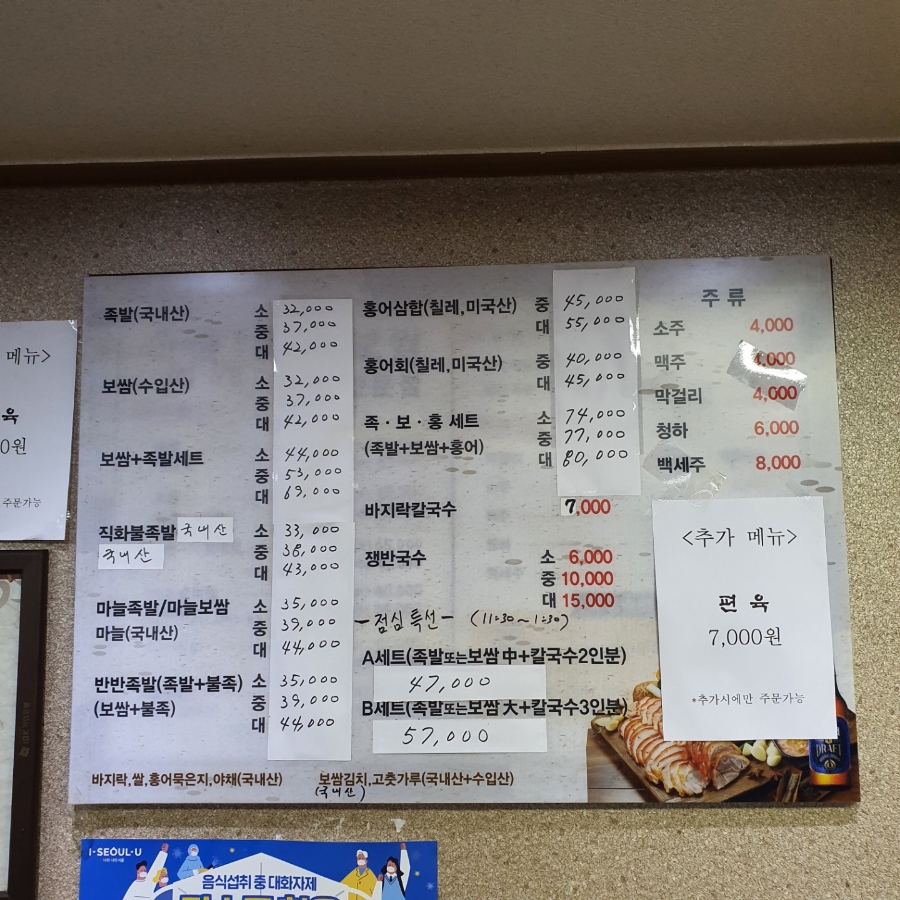 메뉴>
육
0원
주문가능
족발(국내산) 소 32,000
중 37,000
대 42,000
보쌈(수입산) 소 32,000
중 37,000
대 42,000
보쌈+족발세트 소 44,000
중 53,000
대 69,000
직화불족발 국내산 소 33,000
국내산 중 38,000
대 43,000
마늘족발/마늘보쌈 소 35,000
마늘(국내산) 중 39,000
대 44,000
반반족발(족발+불족) 소 35,000
(보쌈+불족) 중 39,000
대 44,000
홍어삼합(칠레,미국산) 중 45,000
대 55,000
홍어회(칠레,미국산) 중 40,000
대 45,000
족·보·홍 세트 소 74,000
(족발+보쌈+홍어) 중 77,000
대 80,000
바지락칼국수 7,000
쟁반국수 소 6,000
중 10,000
대 15,000
-점심특선- (11:30~1:30)
A세트(족발또는보쌈 中+칼국수2인분)
47,000
B세트(족발또는보쌈 大+칼국수3인분)
57,000
주류
소주 4,000
맥주 4,000
막걸리 4,000
청하 6,000
백세주 8,000
<추가 메뉴>
편육
7,000원
*추가시에만 주문가능
DRAFT
바지락,쌀,홍어묵은지,야채(국내산) 보쌈김치,고춧가루(국내산+수입산)
(국내산)
I·SEOUL·U
음식섭취 중 대화자제